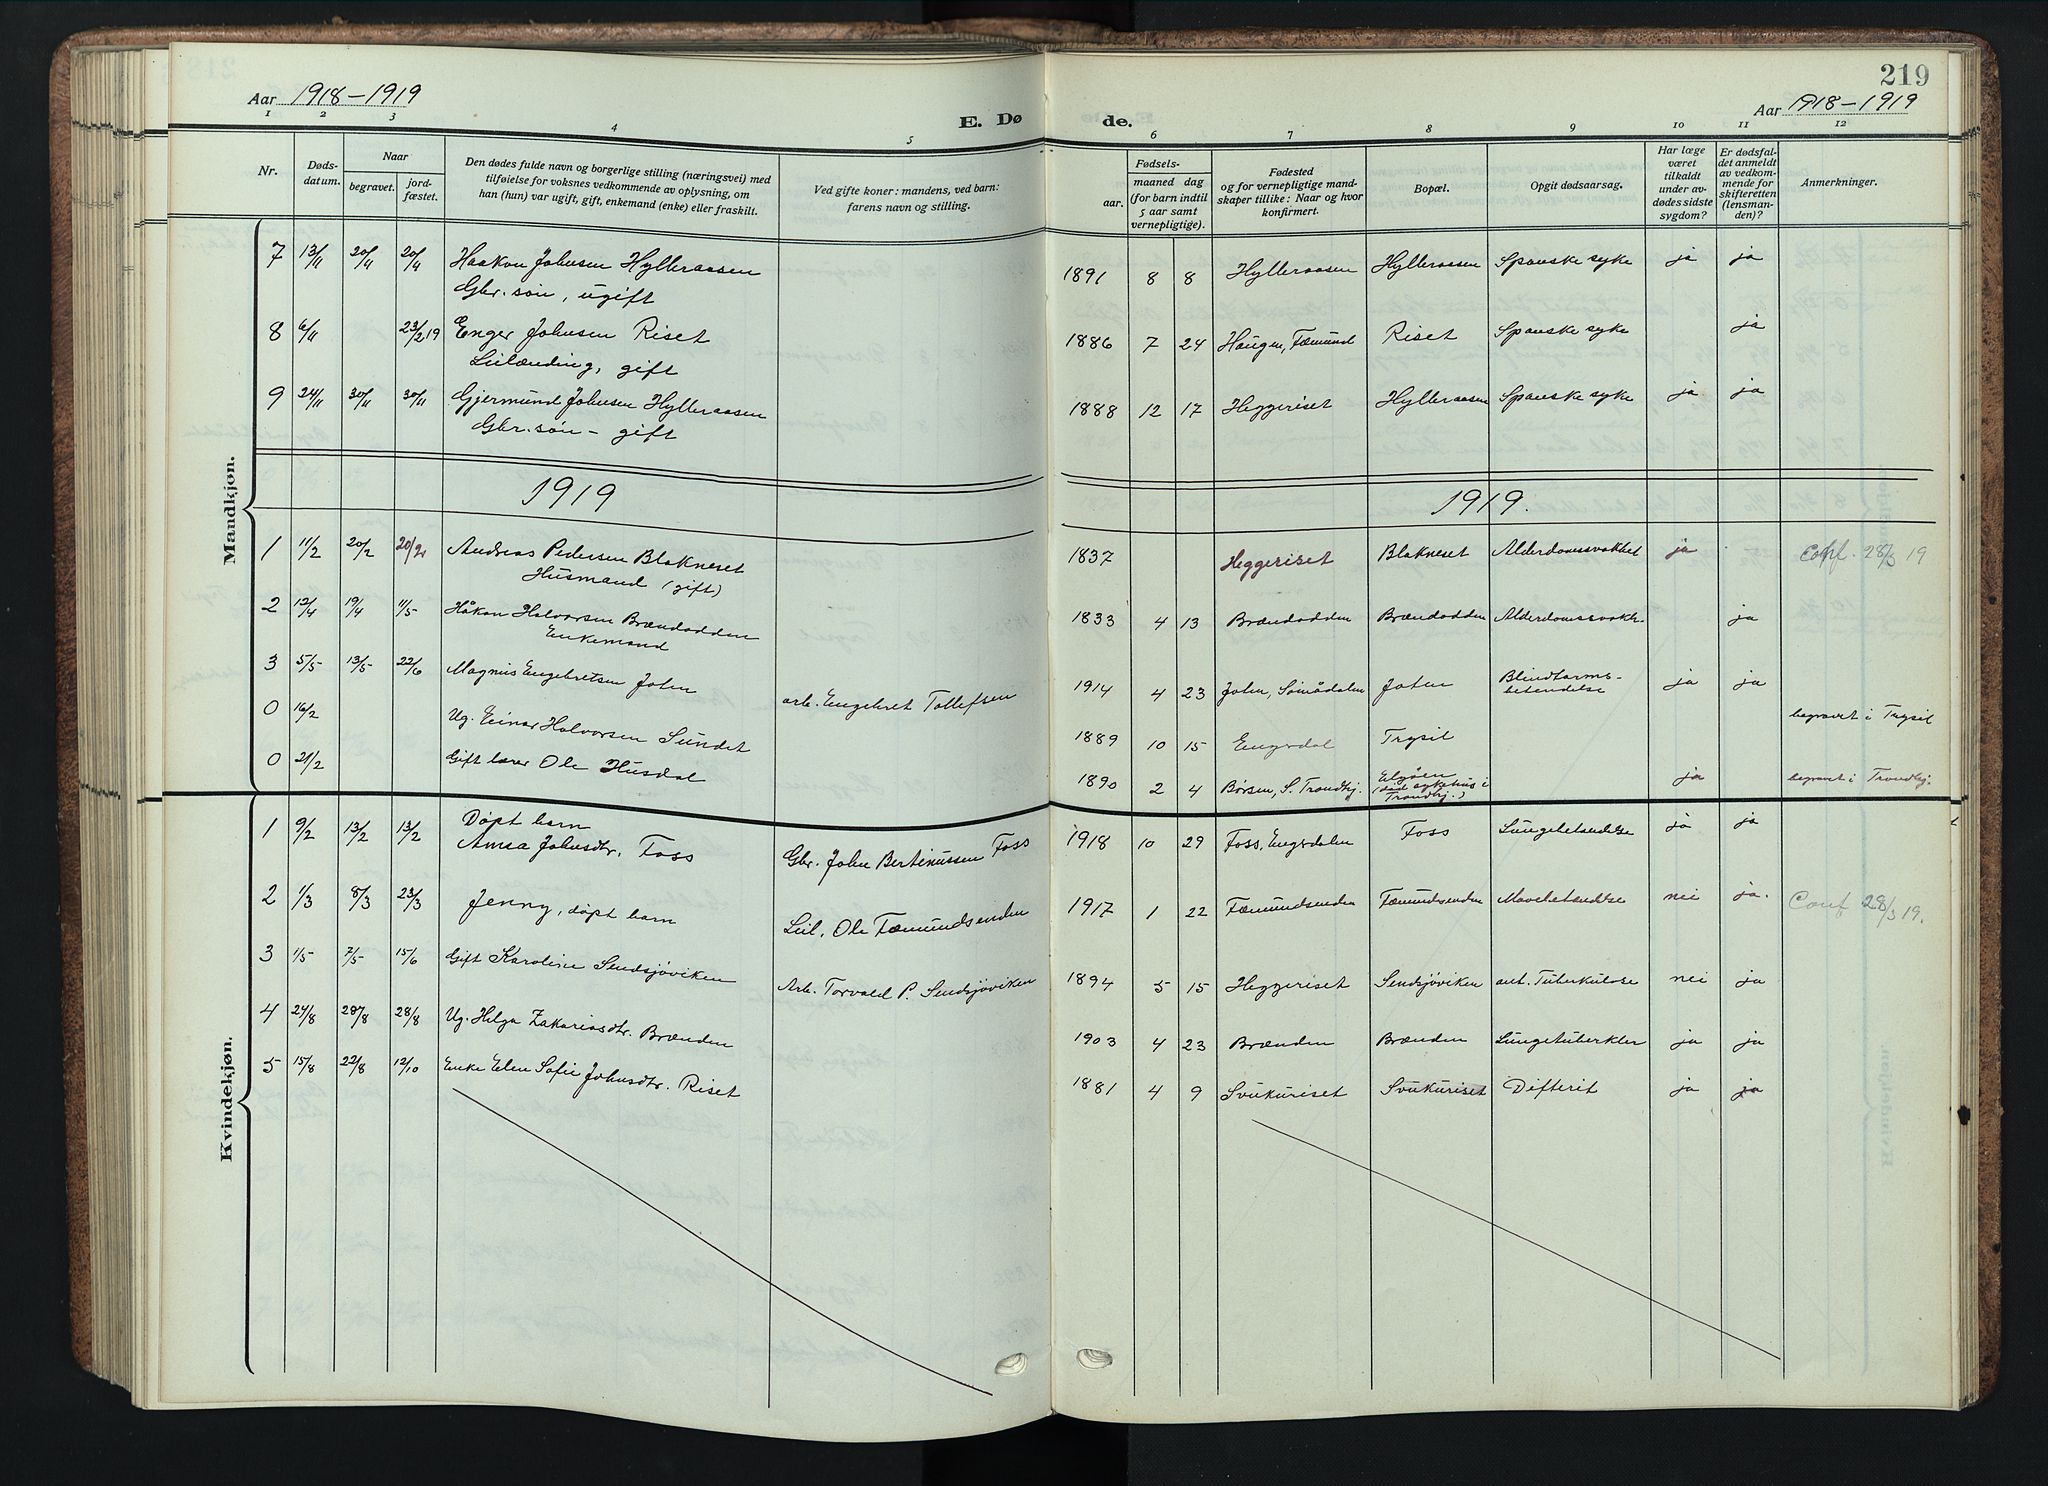 219
Aar 1918-1919
E. Dø
de.
Aar 1918-1919
1 2 3 4 5 6 7 8 9 10 11 12
Nr.
Døds-
datum.
Naar
begravet.
jord-
fæstet.
Den dødes fulde navn og borgerlige stilling (næringsvei) med
tilføielse for voksnes vedkommende av oplysning, om
han (hun) var ugift, gift, enkemand (enke) eller fraskilt.
Ved gifte koner: mandens, ved barn:
farens navn og stilling.
Fødsels-
aar.
maaned dag
(for barn indtil
5 aar samt
vernepligtige).
Fødested
og for vernepligtige mand-
skaper tillike: Naar og hvor
konfirmert.
Bopæl.
Opgit dødsaarsag.
Har læge
været
tilkaldt
under av-
dødes sidste
sygdom?
Er dødsfal-
det anmeldt
av vedkom-
mende for
skifteretten
(lensman-
den)?
Anmerkninger.
Mandkjøn.
7 13/11 20/11 20/11 Haakon Johnsen Hylleraasen 1891 8 8 Hylleraasen Hylleraasen Spanske syke ja ja
Gbr. søn, ugift
8 6/11 23/2 19 Enger Johnsen Riset 1886 7 24 Haugen, Fæmund Riset Spanske syke ja
Leilænding, gift
9 24/11 30/11 30/11 Gjermund Johnsen Hylleraasen 1888 12 17 Heggeriset Hylleraasen Spanske syke ja ja
Gbr. søn - gift
1919 1919.
1 11/2 20/2 20/2 Andreas Pedersen Blakneset 1837 Heggeriset Blakneset Alderdomssvakhet ja Conf. 28/3 19
Husmand (gift)
2 12/4 19/4 11/5 Håkon Halvorsen Brændodden 1833 4 13 Brændodden Brændodden Alderdomssvakh. ja
Enkemand
3 5/5 13/5 22/6 Magnus Engebretsen Joten arb. Engebret Tollefsen 1914 4 23 Joten, Sømådalen Joten Blindtarms-
betendelse ja ja
0 16/2 Ug. Einar Halvorsen Sundet 1889 10 15 Engerdal Trysil begravet i Trysil
0 21/2 Gift lærer Ole Husdal 1890 2 4 Børsen, S. Trondhj. Elgåen
(død sykehus i
Trondhj.) ja begravet i Trondhj.
Kvindekjøn.
1 9/2 13/2 13/2 Døpt barn
Anna Johnsdtr. Foss Gbr. John Bertinussen Foss 1918 10 29 Foss, Engerdalen Foss Lungebetendelse ja ja
2 1/3 8/3 23/3 Jenny, døpt barn Leil. Ole Fæmundsenden 1917 1 22 Fæmundsenden Fæmundsenden Mavebetendelse nei ja. Conf 28/3 19.
3 1/5 7/5 15/6 Gift Karoline Sendsjøviken Arb. Torvald P. Sendsjøviken 1894 5 15 Heggeriset Sendsjøviken ant. Tuberkulose nei ja
4 24/8 28/8 28/8 Ug. Helga Zakariasdtr. Brænden 1903 4 23 Brænden Brænden Lungetuberkler ja ja
5 15/8 22/8 12/10 Enke Elen Sofie Johnsdtr. Riset 1881 4 9 Svukuriset Svukuriset Difterit ja ja